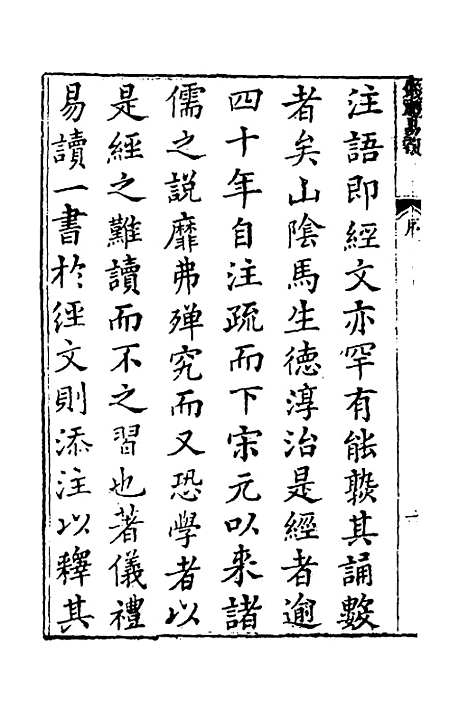 注語即經文亦罕有能竅其誦數
者矣山陰馬生德淳治是經者逾
四十年自注疏而下宋元以來諸
儒之說靡弗殫究而又恐學者以
是經之難讀而不之習也著儀禮
易讀一書於經文則添注以釋其
儀禮易讀
序
一